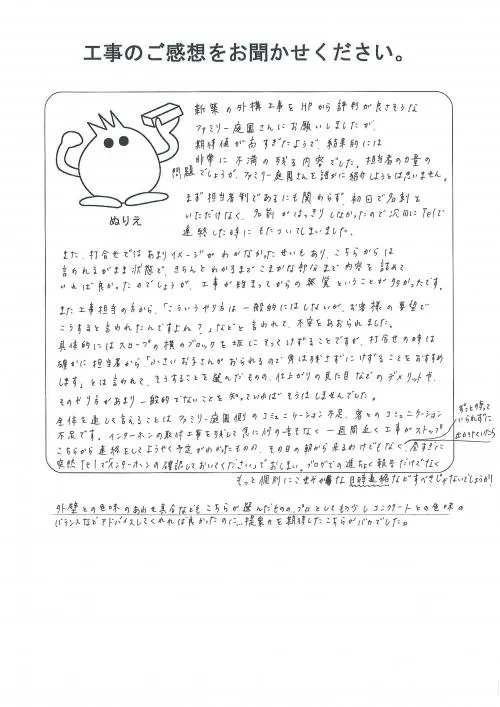 工事のご感想をお聞かせください。
新築の外構工事をHPから評判が良さそうな
ファミリー庭園さんにお願いしましたが、
期待値が高すぎたようで、結果的には
非常に不満の残る内容でした。担当者の力量の
問題でしょうが、ファミリー庭園さんを誰かに紹介しようとは思いません。
ぬりえ
まず担当者制であるにも関わらず、初回で名刺を
いただけなく、名前がはっきりしなかったので次回にTelで
連絡した時にもたついてしまいました。
また、打合せではあまりイメージがわかなかったせいもあり、こちらからは
言われるがまま状態で、きちんとわかるまでこまかな部分まで内容を詰めて
いれば良かったのでしょうが、工事が始まってからの発覚ということが多かったです。
また工事担当の方から、「こういうやり方は一般的にはしないが、お客様の要望で
こうすると言われたんですよね?」などと言われて、不安をあおられました。
具体的にはスロープの横のブロックを坂にそってけずることですが、打合せの時は
確かに担当者から「小さいお子さんがおられるので角は残さずにけずることをおすすめ
します」とは言われて、そうすることを選んだものの、仕上がりの見た目などのデメリットや、
そのやり方があまり一般的でないことを知っていればそうはしませんでした。
全体を通して言えることはファミリー庭園側のコミュニケーション不足、客とのコミュニケーション
不足です。インターホンの取付工事を残して急に何の音もなく一週間近く工事がストップ。
こちらから連絡をしてようやく予定がわかったものの、その日の朝から来るわけでもなく、昼すぎに
ずっと待って
いられずに
出かけていたら
突然Telで「インターホンの確認しておいてください」でおしまい。ブログでの進ちょく報告だけでなく
もっと個別にこまやかな日時連絡などすべきじゃないでしょうか!
外壁との色味のあわせ具合なども、こちらが選んだものの、プロとしてもう少しコンクリートとの色味の
バランスなどアドバイスしてくれれば良かったのに…提案力を期待したこちらがバカでした。